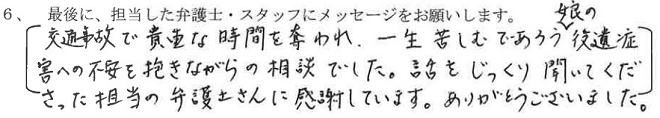 6、 最後に、担当した弁護士・スタッフにメッセージをお願いします。
交通事故で貴重な時間を奪われ、一生苦しむであろう娘の後遺症
害への不安を抱きながらの相談でした。話をじっくり聞いてくだ
さった担当の弁護士さんに感謝しています。ありがとうございました。